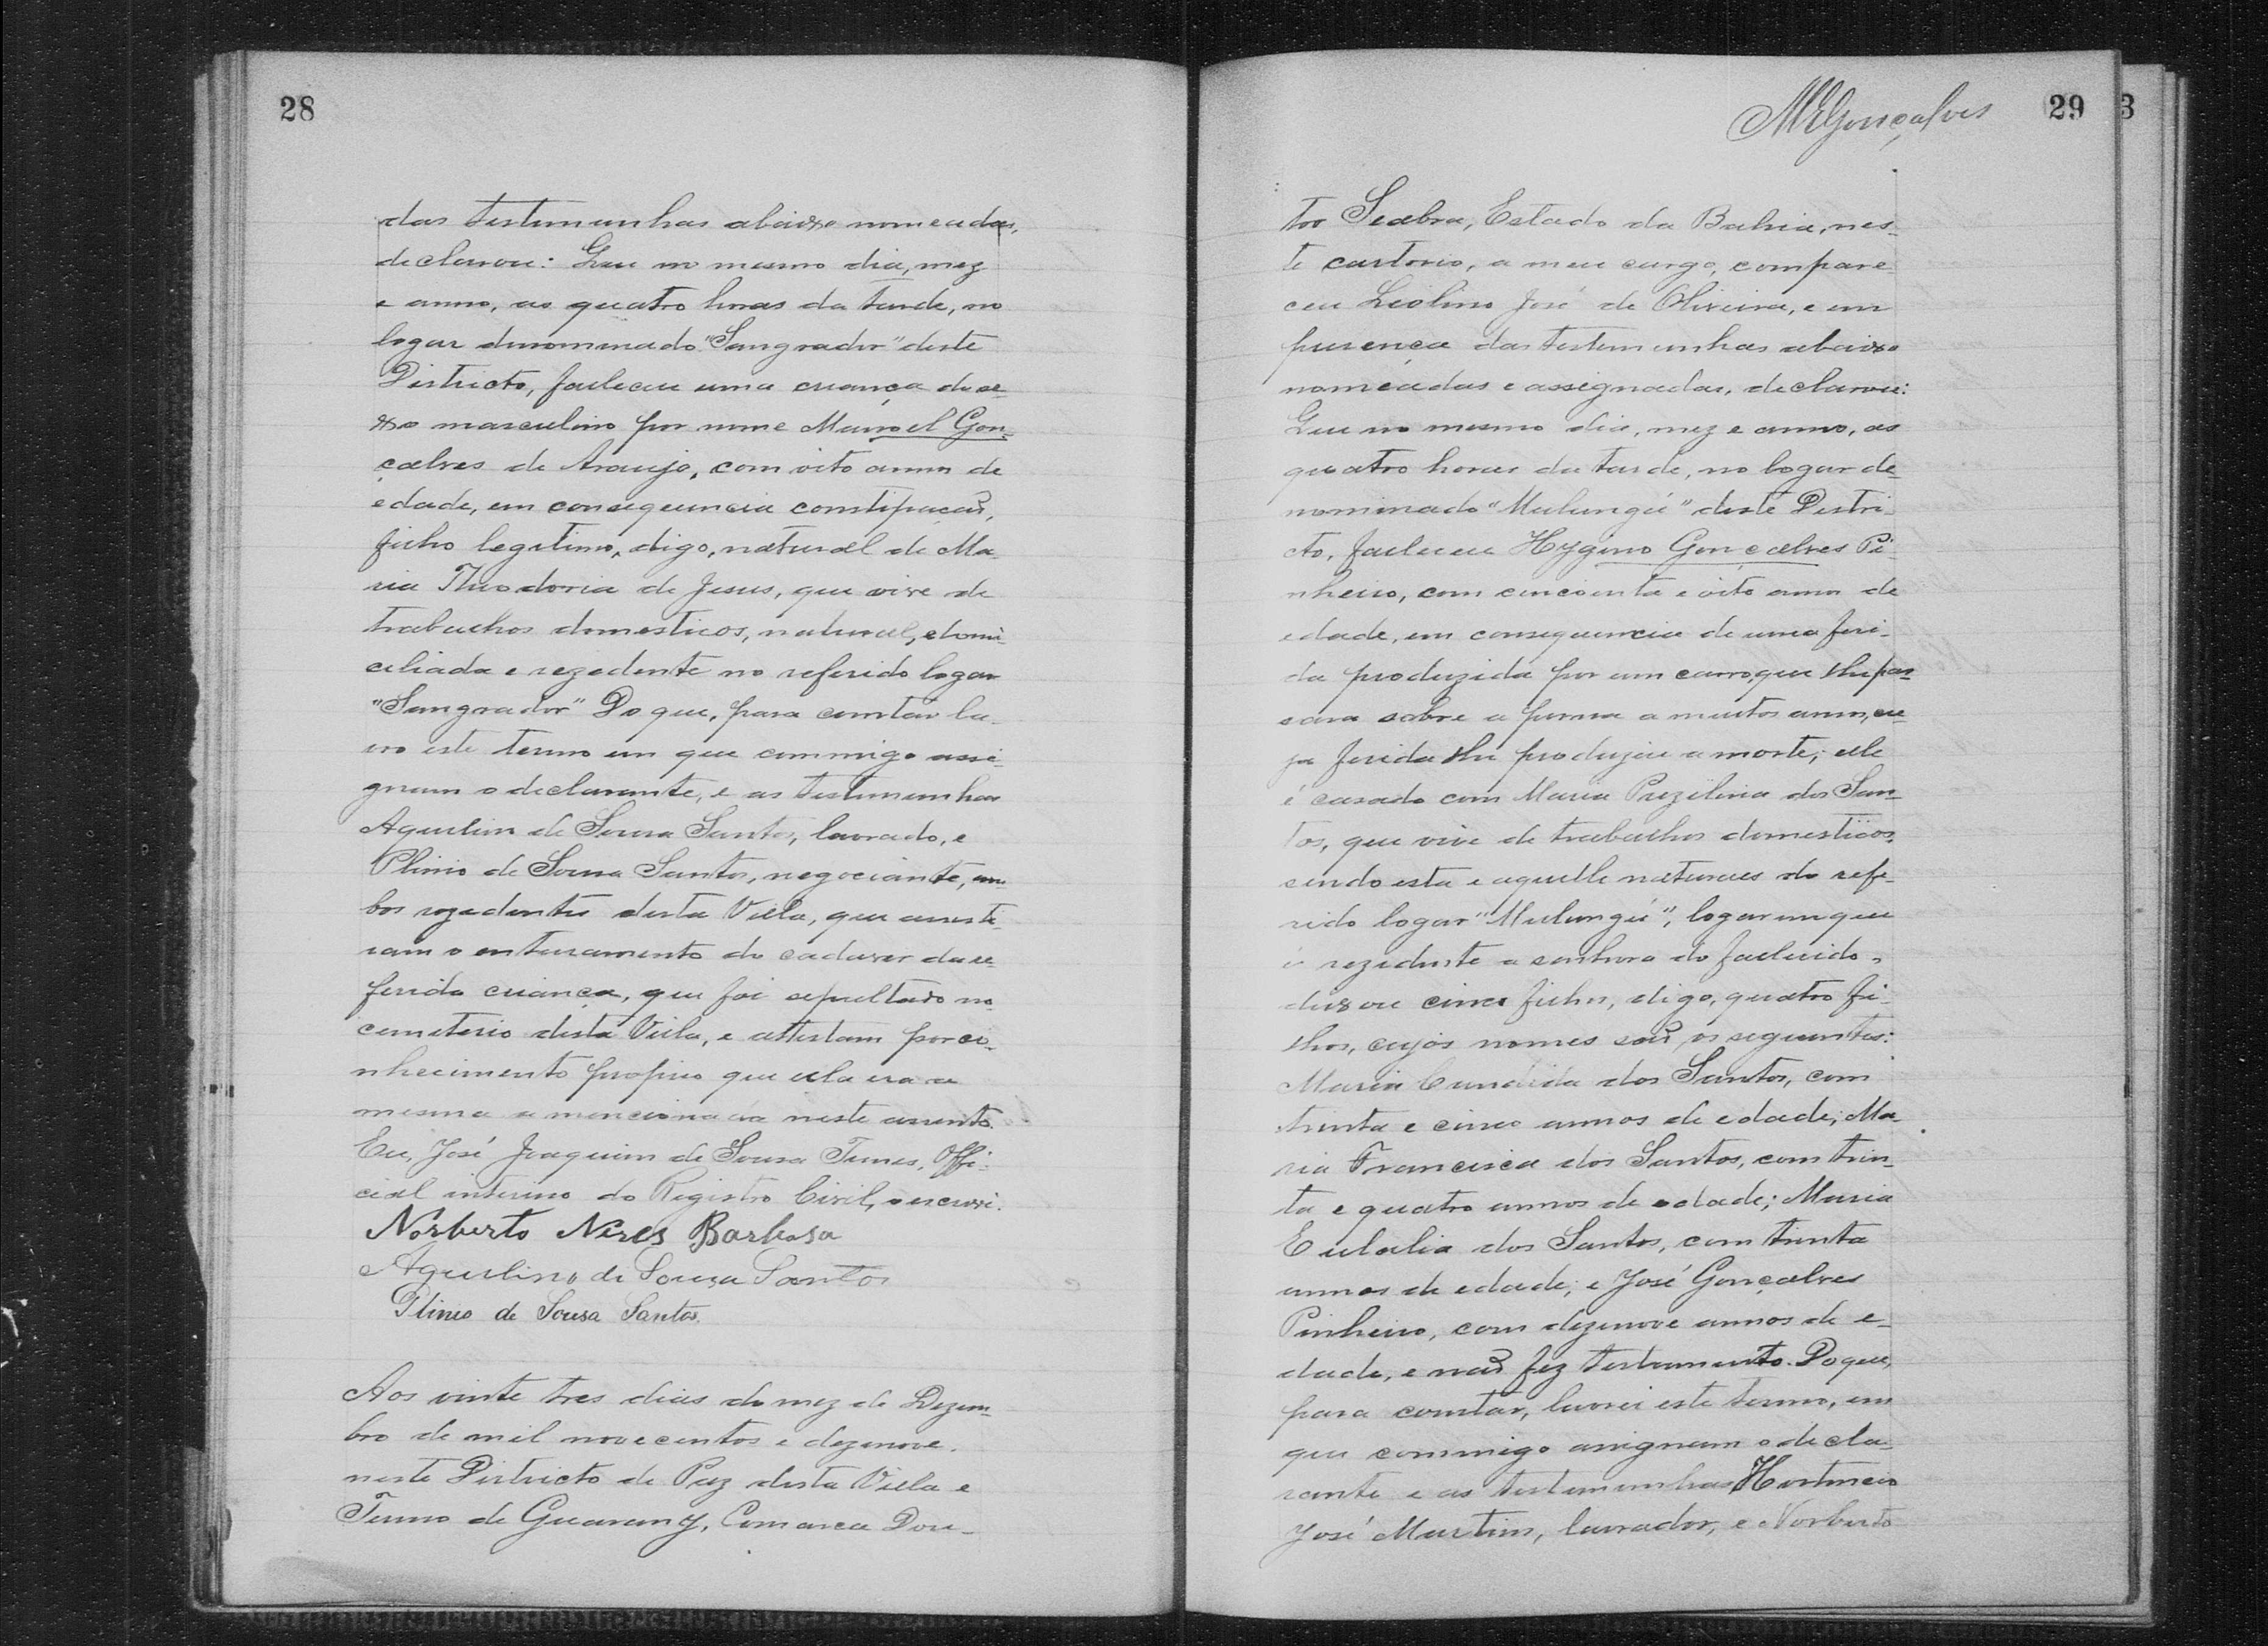 28
das testemunhas abaixo nomeadas,
declarou: Que no mesmo dia, mez
e anno, as quatro horas da tarde, no
logar denominado "Sangrador" deste
Districto, falleceu uma creança do se-
xo masculino por nome Manoel Gon-
çalves de Araujo, com oito annos de
edade, em consequencia constipação,
filho legitimo, digo, natural de Ma-
ria Theodoria de Jesus, que vive de
trabalhos domesticos, natural, domi-
ciliada e rezedente no referido logar
"Sangrador" Do que, para constar la-
vro este termo em que commigo assi-
gnam o declarante, e as testemunhas
Aquilino de Sousa Santos, lavrado, e
Plinio de Sousa Santos, negociante, am-
bos rezedentes desta Villa, que assisti-
ram o enterramento do cadaver da re-
ferida creança, que foi sepultado no
cemeterio desta Villa, e attestam por co-
nhecimento proprio que ella era a
mesma a mencionada neste assento.
Eu, José Joaquim de Sousa Tunes, Offi-
cial interino do Registro Civil, o escrevi.
Norberto Neres Barbosa
Aquilino de Sousa Santos
Plinio de Sousa Santos.
Aos vinte tres dias do mez de Dezem-
bro de mil novecentos e dezenove.
neste Districto de Paz desta Villa e
Termo de Guarany, Comarca Dou-
MEGonçalves
29
3
tor Seabra, Estado da Bahia, nes-
te cartorio, a meu cargo, compare-
ceu Liolino José de Oliveira, e em
presença das testemunhas abaixo
nomeadas e assignadas, declarou:
Que no mesmo dia, mez e anno, as
quatro horas da tarde, no logar de-
nominado "Mulungú" deste Distri-
cto, falleceu Hygino Gonçalves Pi-
nheiro, com cincoenta e oito annos de
edade, em consequencia de uma feri-
da produzida por um carro, que lhe pas-
sara sobre a perna a muitos annos, cu-
ja ferida lhe produziu a morte; elle
é casado com Maria Prezilina dos San-
tos, que vive de trabalhos domesticos,
sendo esta e aquelle naturaes do refe-
rido logar "Mulungú", logar em que
é rezidente a senhora do fallecido,
deixou cinco filhos, digo, quatro fi-
lhos, cujos nomes são, os seguintes:
Maria Candida dos Santos, com
trinta e cinco annos de edade; Ma-
ria Francisca dos Santos, com trin-
ta e quatro annos de edade; Maria
Eulalia dos Santos, com trinta
annos de edade; e José Gonçalves
Pinheiro, com dezenove annos de e-
dade, e não fez testamento. Do que,
para constar, lavrei este termo, em
que commigo assignam o decla-
rante e as testemunhas
José Martins, lavrador, e Norberto